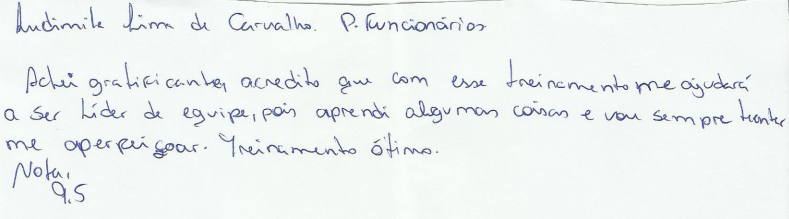 Ludimila Lima de Carvalho. P. Funcionários
Achei gratificante, acredito que com esse treinamento me ajudará
a ser Líder de equipe, pois aprendi algumas coisas e vou sempre tentar
me aperfeiçoar. Treinamento ótimo.
Nota.
9.5